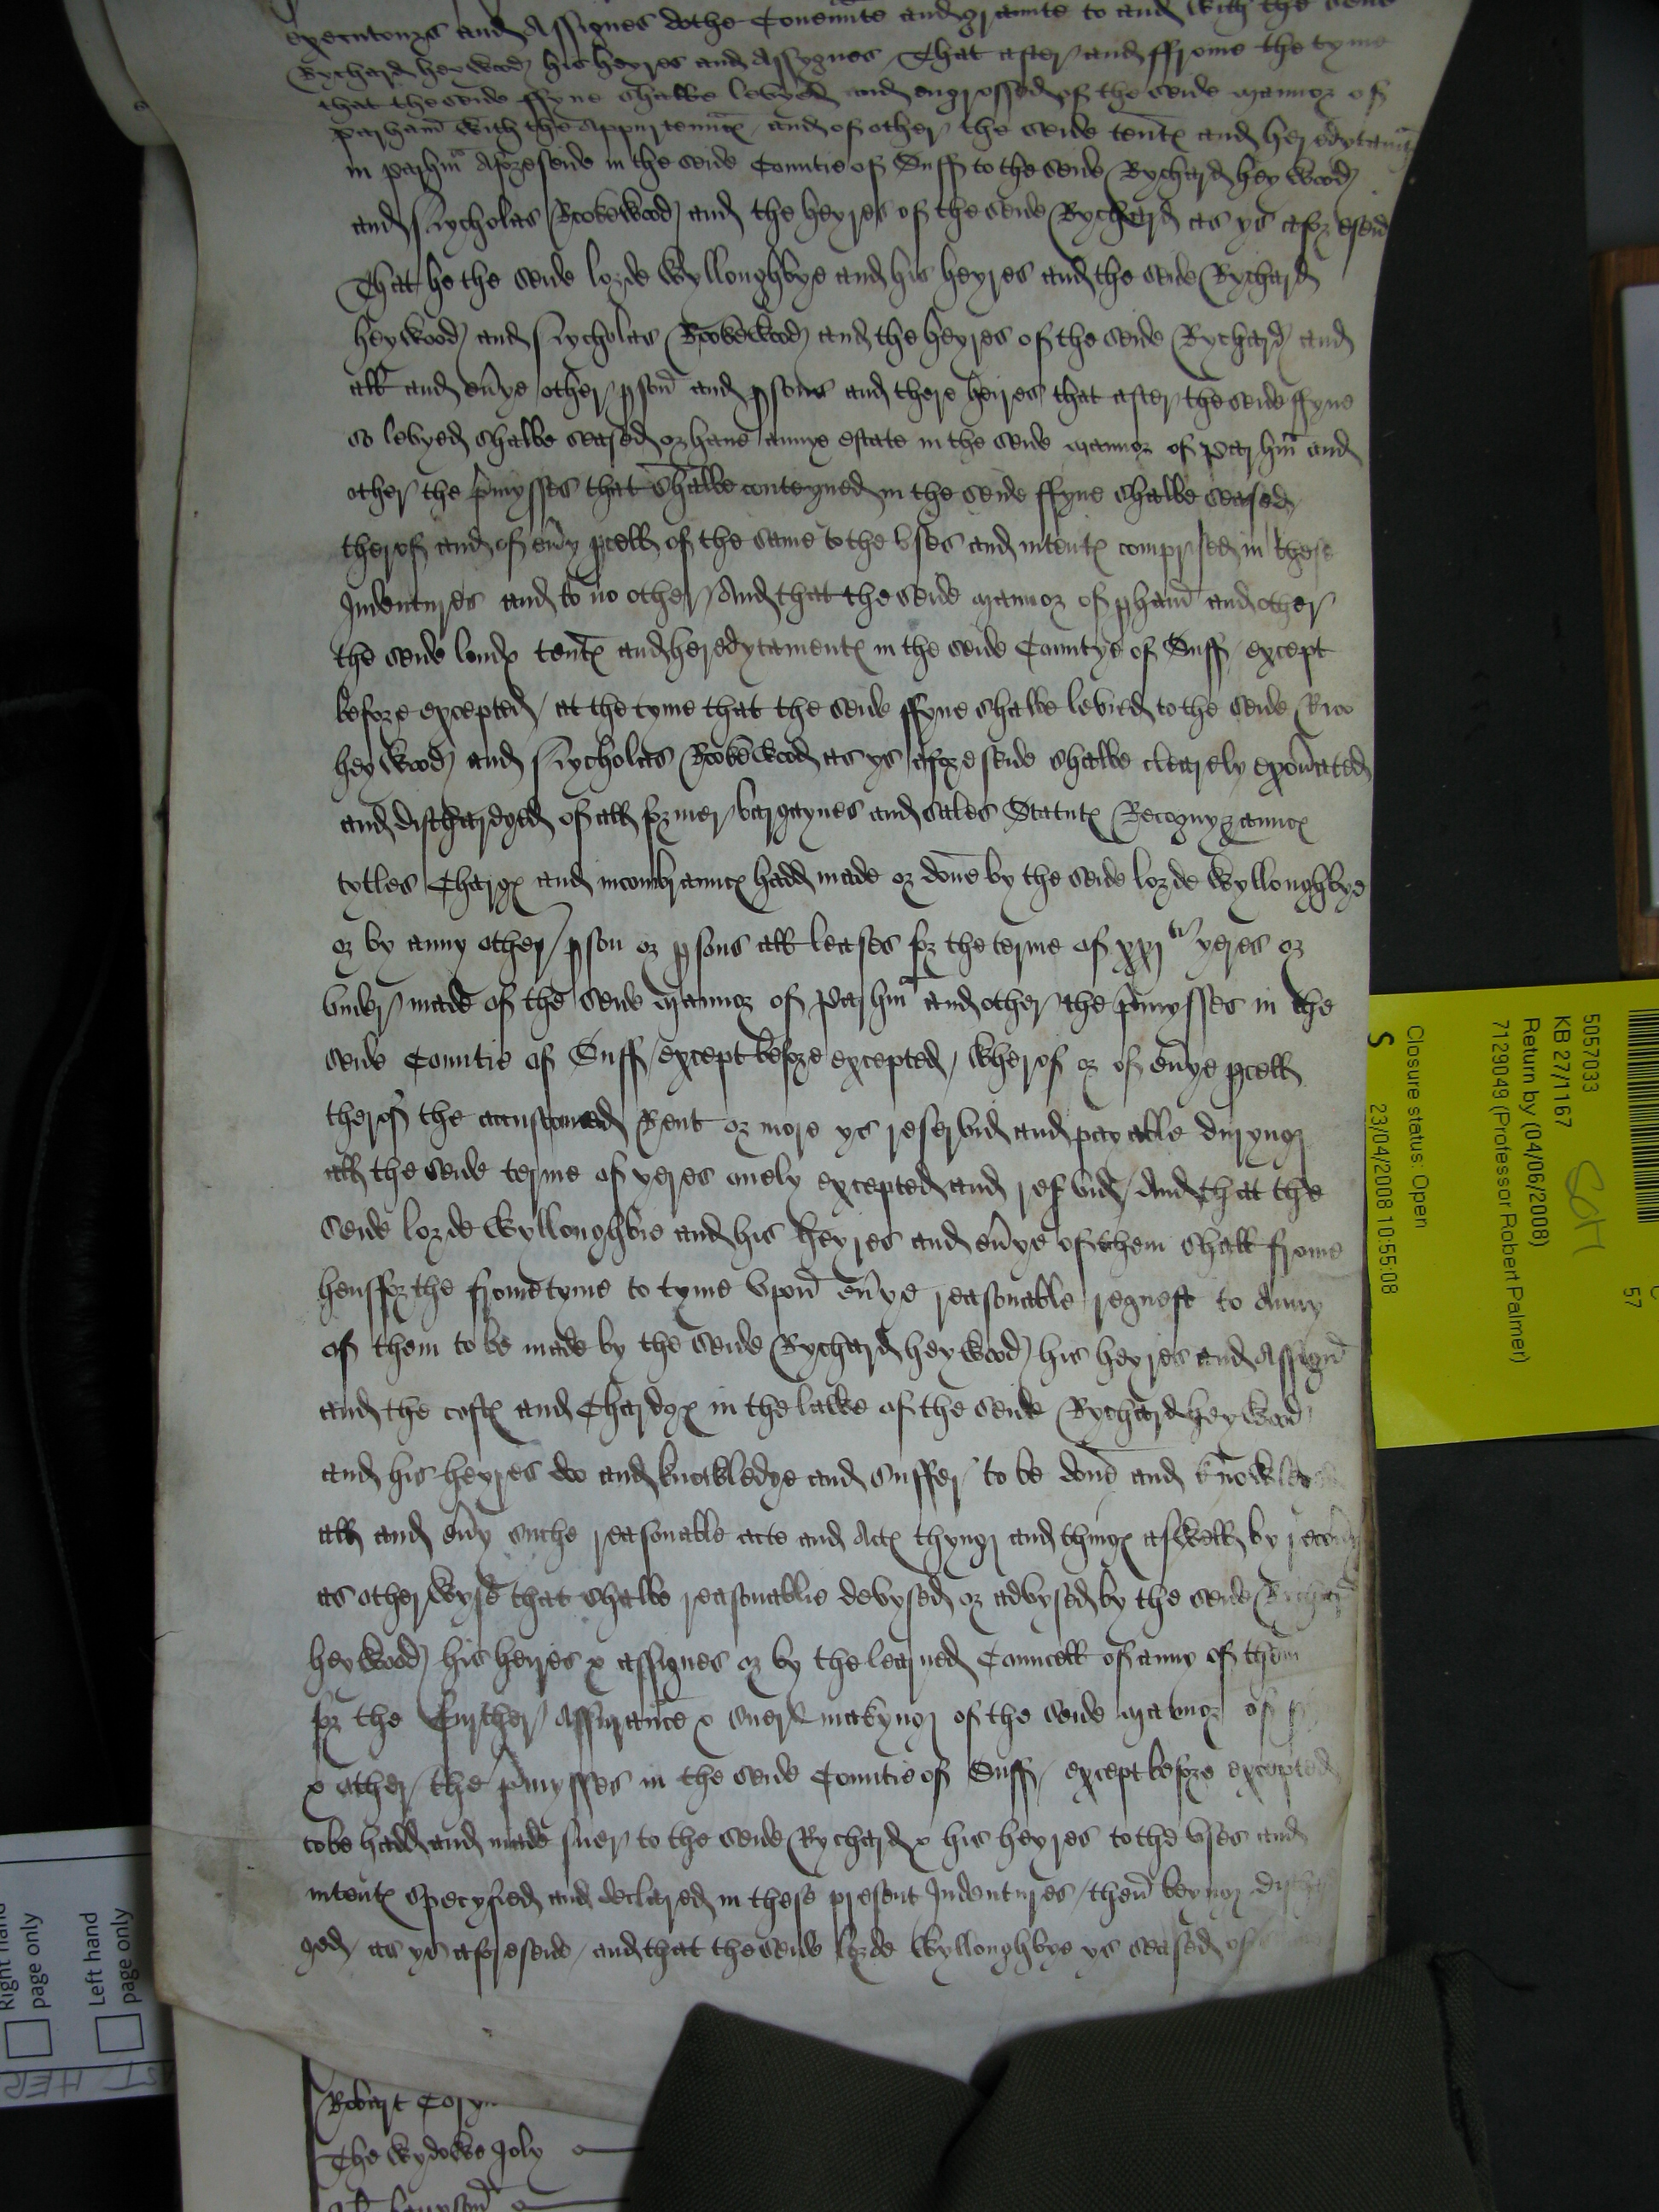 executours and Assignes dothe Covennte and graunte to and with the seide
Rychard heywood his heyres and Assygnes / That after and ffrome the tyme
that the seide ffyne shalbe levyed and engrossed of the seide mannor of
parham with the Appurtennces / and of other the seide tentes and heredytamtes
in parhm Aforeseide in the seide Countie of Suff to the seide Rychard heywood
and Nycholas Rookewood and the heyres of the seide Rychard as ys aforeseid
That he the seide lorde Wylloughbye and his heyres and the seide Rychard
heywood and Nycholas Rookewood and the heyres of the seide Rychard and
all and evye other pson and psons and there heires that after the seide ffyne
so levyed shalbe seased or have annye estate in the seide mannor of parhm and
other the pmysses that shalbe conteyned in the seide ffyne shalbe seased
therof and of evy pcell of the same to the vses and intentes comprised in these
Indentures and to no other / And that the seide mannor of pham and other
the seide londes tentes and heredytamentes in the seide Countye of Suff / except
before excepted / at the tyme that the seide ffyne shalbe levied to the seide Ric
heywood and Nycholas Rookewood as ys aforeseide shalbe clearely exonated
and dischardged of all former bargaynes and sales Statutes Recognyzannces
tytles Charges and incombrannces hadd made or done by the seide lorde Wylloughbye
or by anny other pson or psons all leases for the terme of xxj ti yeres or
vnder made of the seide mannor of Parhm and other the pmysses in the
seide Countie of Suff / except before excepted / wherof or of evye pcell
therof the accustomed Rent or more ys reservid and payable duryng
all the seide terme of yeres onely excepted and resvid / And that the
seide lorde Wylloughbie and his heyres and evye of them shall frome
hensforthe frome tyme to tyme vpon evye reasonable request to Anny
of them to be made by the seide Rychard heywood his heyres and Assign
and the costes and Chardges in the lawe of the seide Rychard heywood
and his heyres do and knowledge and suffer to be done and
all and evy suche reasonable acte and Actes thyng and thinges aswell by
as otherwyse that shalbe reasonablie devysed or advysed by the seide
heywood his heires & assignes or by the learned Councell of anny of them
for the further Assurance & suer makyng of the seide mannor of
& other the pmysses in the seide Countie of Suff / except before excepted
to be hadd and made suer to the seide Rychard & his heyres to the vses and
intentes specyfied and declared in these present Indentures / then beyng
ged as ys aforeseide / and that the seide lorde Wylloughbye ys seased of
Robart
The wydowe Joly
5057033
KB 27/1167
Return by (04/06/2008)
7129049 (Professor Robert Palmer)
Closure status: Open
S 23/04/2008 10:55:08
57
Right hand
page only
Left hand
page only